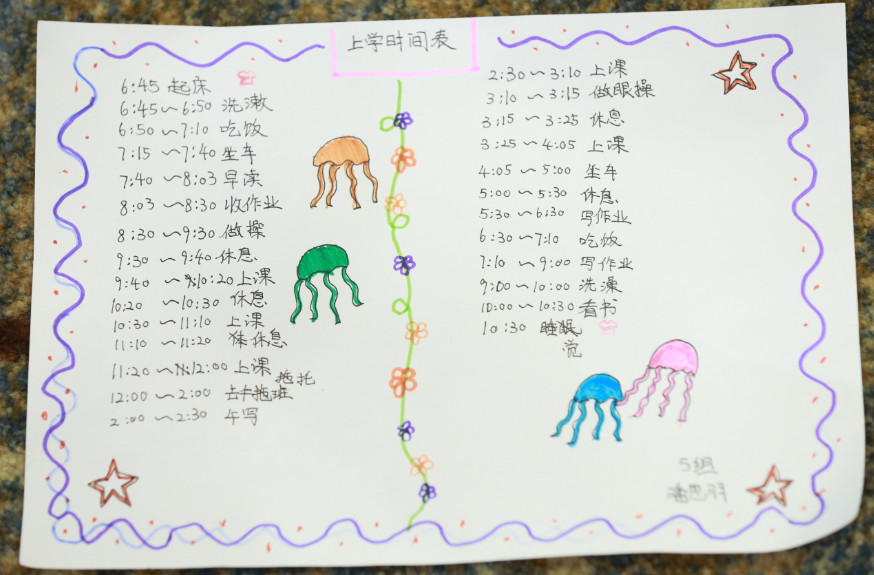 上学时间表
6:45 起床
6:45～6:50 洗漱
6:50～7:10 吃饭
7:15～7:40 坐车
7:40～8:03 早读
8:03～8:30 收作业
8:30～9:30 做操
9:30～9:40 休息
9:40～10:20 上课
10:20～10:30 休息
10:30～11:10 上课
11:10～11:20 休息
11:20～12:00 上课
12:00～2:00 去托班
2:00～2:30 午写
2:30～3:10 上课
3:10～3:15 做眼操
3:15～3:25 休息
3:25～4:05 上课
4:05～5:00 坐车
5:00～5:30 休息
5:30～6:30 写作业
6:30～7:10 吃饭
7:10～9:00 写作业
9:00～10:00 洗澡
10:00～10:30 看书
10:30 睡觉
5组
潘思羽